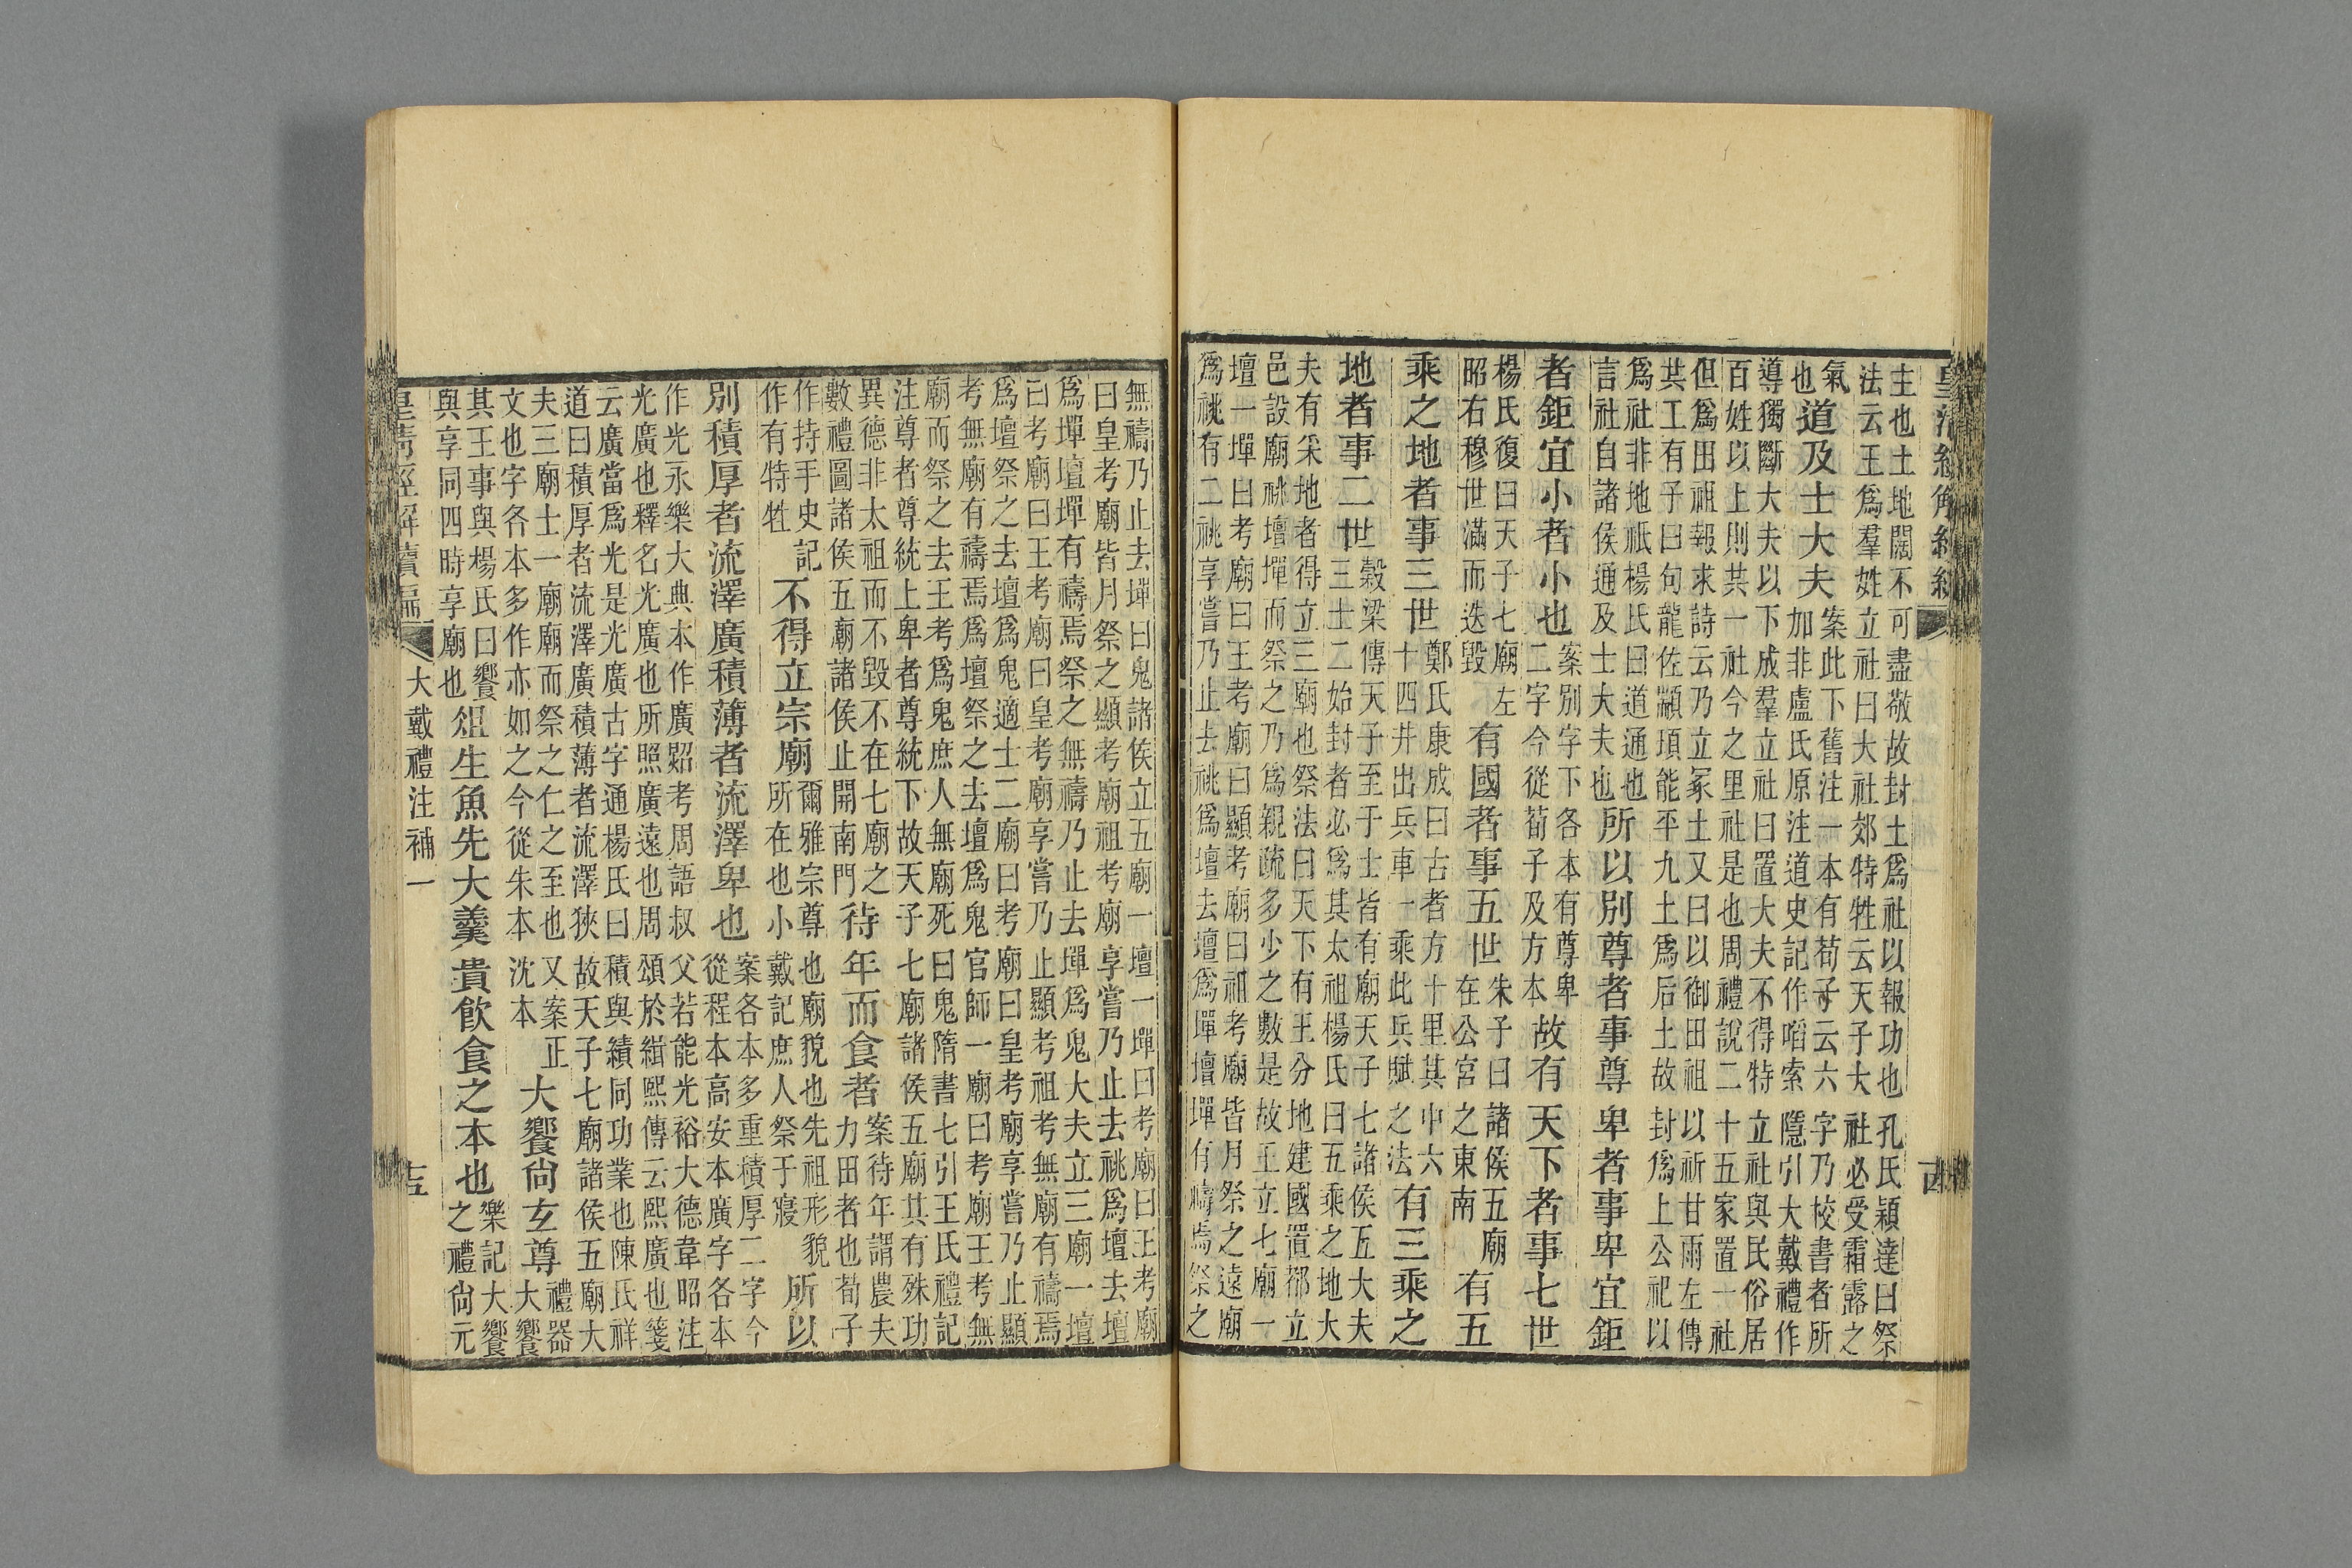 皇清經解續編 十四
主也土地闊不可盡敬故封土爲社以報功也孔氏穎達曰祭
法云王爲羣姓立社曰大社郊特牲云天子大社必受霜露之
氣也道及士大夫案此下舊注一本有荀子云六字乃校書者所加非盧氏原注道史記作啗索隱引大戴禮作
導獨斷大夫以下成羣立社曰置大夫不得特立社與民俗居
百姓以上則共一社今之里社是也周禮說二十五家置一社
但爲田祖報求詩云乃立冢土又曰以御田祖以祈甘雨左傳
共工有子曰句龍佐顓頊能平九土爲后土故封爲上公祀以
爲社非地祇楊氏曰道通也言社自諸侯通及士大夫也所以別尊者事尊卑者事卑宜鉅
者鉅宜小者小也案別字下各本有尊卑二字今從荀子及方本故有天下者事七世
楊氏復曰天子七廟左昭右穆世滿而迭毀有國者事五世朱子曰諸侯五廟在公宮之東南有五
乘之地者事三世鄭氏康成曰古者方十里其中六十四井出兵車一乘此兵賦之法有三乘之
地者事二世穀梁傳天子至于士皆有廟天子七諸侯五大夫三士二始封者必爲其太祖楊氏曰五乘之地大
夫有采地者得立三廟也祭法曰天下有王分地建國置都立
邑設廟祧壇墠而祭之乃爲親疏多少之數是故王立七廟一
壇一墠曰考廟曰王考廟曰顯考廟曰祖考廟皆月祭之遠廟
爲祧有二祧享嘗乃止去祧爲壇去壇爲墠壇墠有禱焉祭之
無禱乃止去墠曰鬼諸侯立五廟一壇一墠曰考廟曰王考廟
曰皇考廟皆月祭之顯考廟祖考廟享嘗乃止去祧爲壇去壇
爲墠壇墠有禱焉祭之無禱乃止去墠爲鬼大夫立三廟一壇
曰考廟曰王考廟曰皇考廟享嘗乃止顯考祖考無廟有禱焉
爲壇祭之去壇爲鬼適士二廟曰考廟曰皇考廟享嘗乃止顯
考無廟有禱焉爲壇祭之去壇爲鬼官師一廟曰考廟王考無
廟而祭之去王考爲鬼庶人無廟死曰鬼隋書七引王氏禮記
注尊者尊統上卑者尊統下故天子七廟諸侯五廟其有殊功
異德非太祖而不毀不在七廟之數禮圖諸侯五廟諸侯止開南門待年而食者案待年謂農夫力田者也荀子
作持手史記作有特牲不得立宗廟爾雅宗尊也廟貌也先祖形貌所在也小戴記庶人祭于寢所以
別積厚者流澤廣積薄者流澤卑也案各本多重積厚二字今從程本高安本廣字各本
作光永樂大典本作廣炤考周語叔父若能光裕大德韋昭注
光廣也釋名光廣也所照廣遠也周頌於緝熙傳云熙廣也箋
云廣當爲光是光廣古字通楊氏曰積與績同功業也陳氏祥
道曰積厚者流澤廣積薄者流澤狹故天子七廟諸侯五廟大
夫三廟士一廟而祭之仁之至也又案正文也字各本多作亦如之今從朱本沈本大饗尙玄尊禮器大饗
其王事與楊氏曰饗與享同四時享廟也俎生魚先大羹貴飲食之本也樂記大饗之禮尙元
皇清經解續編 大戴禮注補一 十五